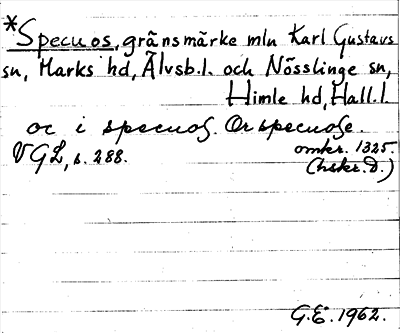 *Specuos, gränsmärke mln Karl Gustavs
sn, Marks hd, Älvsb.l. och Nösslinge sn,
Himle hd, Hall.l.
oc i specuos. Or specuose.
VGL, s. 288. omkr. 1325.
(hskr. D.)
G.E. 1962.